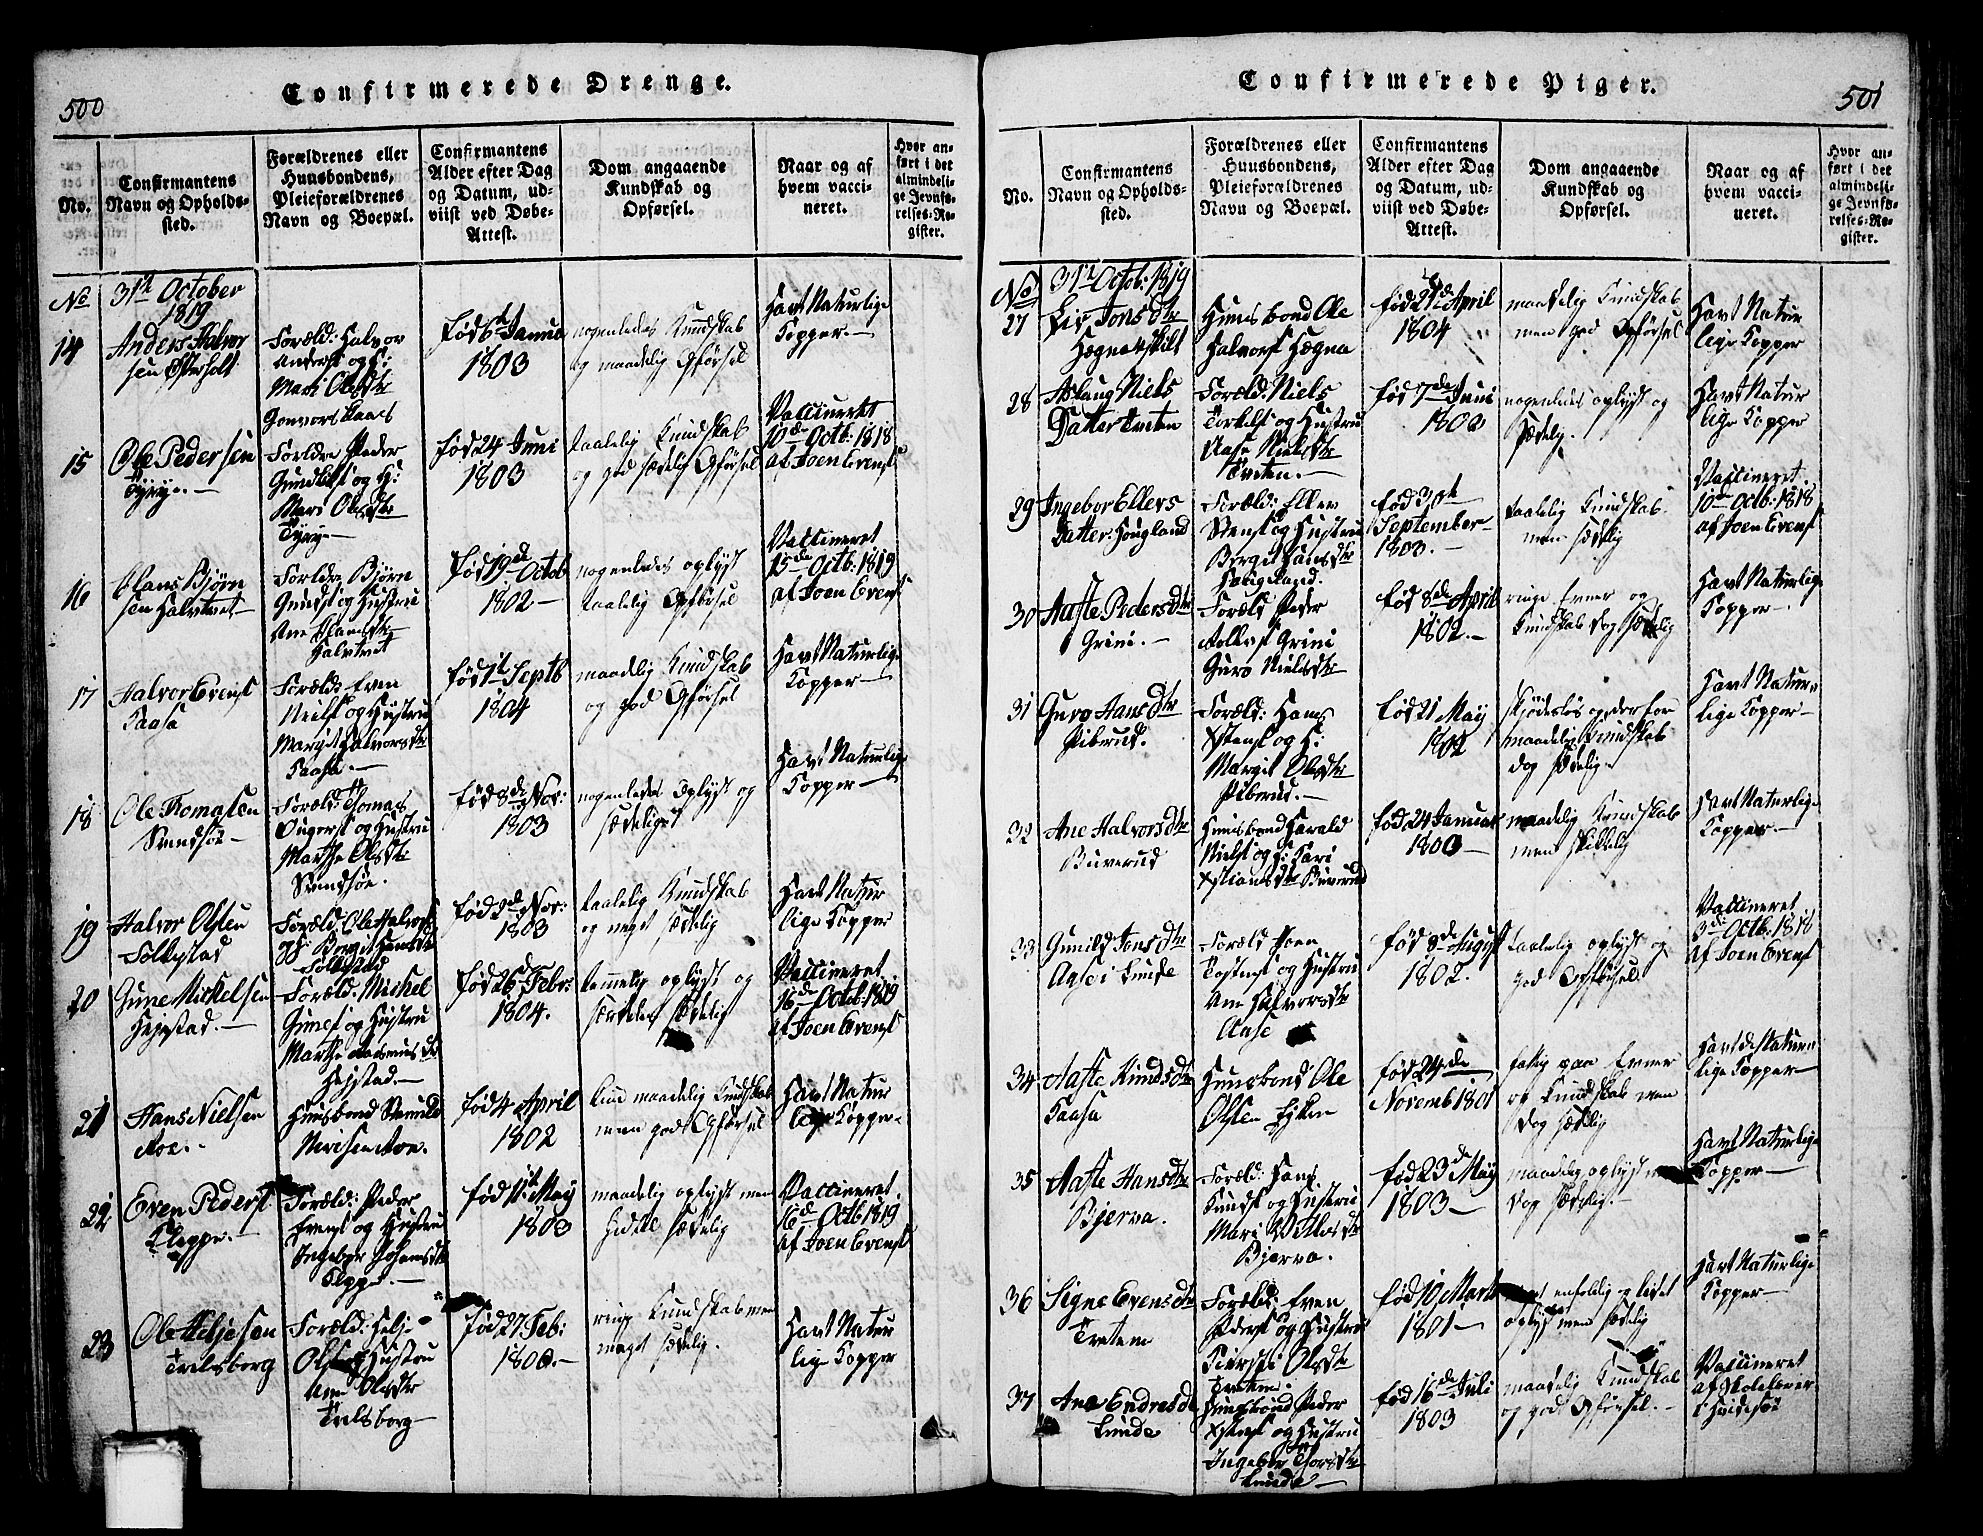 500
Confirmerede Drenge.
No.
Confirmantens
Navn og Opholds-
sted.
Forældrenes eller
Huusbondens,
Pleieforældrenes
Navn og Boepæl.
Confirmantens
Alder efter Dag
og Datum, ud-
viist ved Døbe-
Attest.
Dom angaaende
Kundskab og
Opførsel.
Naar og af
hvem vacci-
neret.
Hvor an-
ført i det
almindeli-
ge Jevnfø-
relses-Re-
gister.
No 31te October
1819
14
Anders Halvor
sen Østerholt
Foræld: Halvor
Anders: og H:
Mari Olsdtr
Gonvorskaas
Fød 6te Janua
1803
nogenledes Kundskab
og maadelig Opførsel
Havt Naturlige
Kopper
15
Ole Pedersen
Tyrye
Foreldre Peder
og H:
Mari Olesdtr
Tyrye
Fød 24 Juni
1803
taalelig Kundskab
og god sædelig Opførsel
Vaccineret
10de Octb: 1818
af Joen Evens
16
Clans Bjørn
sen Halvtvet
Foreldre Bjørn
og Hustru
Ane Clausdtr
Halvtvet
Fød 19de Octob
1802
nogenledes oplyst
taalelig Opførsel
Vaccineret
15de Octb: 1819
af Joen Evens
17
Halvor Evens
Kaasa
Foræld: Even
Niels og Hustru
Margit Halvorsdtr
Kaasa
Fød 1te Septb
1804
maadelig Kundskab
og god Opførsel
Havt Naturlige
Kopper
18
Ole Thomasen
Svendsøe
Foræld: Tomas
og Hustru
Marthe Olsdtr
Svendsøe.
Fød 8de Nov:
1803
nogenledes oplyst og
sædeligst
Havt Naturlige
Kopper
19
Halvor Olsen
Folkestad
Foræld: Ole Halvors
H: Borget Hansdtr
Folkestad
Fød 2de Nov:
1803
taalelig Kundskab
og meget sædelig
Havt Natur
lige Kopper
20
Gune Mickelsen
Hejestad.
Foræld: Mickel
Gunes og Hustru
Marthe Rasmusdtr
Hejstad.
Fød 26de Febr:
1804.
temmelig oplyst og
særdeles sædelig
Vaccineret
16de Octob: 1819
af Joen Evens
21
Hans Nielsen
Roe.
Huusbond
Roe.
Fød 4 April
1802
kun maadelig Kundskab
men god Opførsel
Havt Natur
lige Kopper
22
Even Peders
Kleppe.
Foræld: Peder
Evens og Hustru
Ingebor Johansdtr
Kleppe.
Fød 11te May
1803
maadelig oplyst men
sædelig
Vaccineret
16de Octb 1819
af Joen Evens
23
Ole Heljesen
Trelsborg
Foræld: Helje
Ols og Hustru
Ane Olesdtr
Trelsborg
Fød 27 Feb:
1800.
ringe Kundskab men
meget sædelig.
Havt Natur
lige Kopper
Confirmerede Piger.
501
No.
Confirmantens
Navn og Opholds-
sted.
Forældrenes eller
Huusbondens,
Pleieforældrenes
Navn og Boepæl.
Confirmantens
Alder efter Dag
og Datum, ud-
viist ved Døbe-
Attest.
Dom angaaende
Kundskab og
Opførsel.
Naar og af
hvem vacci-
neret.
Hvor an-
ført i det
almindeli-
ge Jevnfø-
relses-Re-
gister.
No 31te Octob: 1819
27
Liv Jonsdtr
Hægnaeskilt
Huusbond Ole
Halvors Hægna
Fød 21de April
1804
maadelig Kundskab
men god Opførsel
Havt Natur
lige Kopper
28
Aslaug Niels
Datter Tveten
Foræld: Niels
Torkels og Hustru
Aase Nielsdtr
Tveten.
Fød 7de Juni
nogenledes oplyst og
sædelig.
Havt Natur
lige Kopper
29
Ingebor Ellers
Datter: Hougland
Foræld: Eller
Stens og Hustru
Borgit Hansdtr
Haugeland.
Fød 30te
September
1803.
taalelig Kundskab
men sædelig
Vaccineret
10de Octb: 1818
af Joen Evens
30
Aaste Pedersdtr
Grini.
Foræld Peder
Grini
Guro Nielsdtr
Fød 8de April
1802.
ringe Evner og
Kundskab dog sædelig
Havt Naturlige
Kopper
31
Guro Hansdtr
Piberud.
Foræld: Hans
Xstens og H:
Margit Olesdtr
Piberud.
Fød 21 May
1802
skjødesløs og derfor
maadelig Kundskab
dog sædelig
Havt Natur
lige Kopper
32
Ane Halvorsdtr
Buverud
Huusbond Harald
Niels og H: Kari
Xstiansdtr Buverud
Fød 24 Januar
1800
maadelig Kundskab
men skikkelig
Havt Naturlige
Kopper
33
Gunild Jonsdtr
Aase i Lunde
Foræld Joen
Tostens og Hustru
Ane Halvorsdtr
Aase
Fød 8de Augst
1802.
taalelig oplyst og
god Opførsel
Vaccineret
3de Octb: 1818
af Joen Evens
34
Aaste Knudsdtr
Kaasa
Huusbond Ole
Olsen
Fød 24de
Novemb 1801
fattig paa Evner
og Kundskab men
dog sædelig
Havt de Natur
lige Kopper
35
Aaste Hansdtr
Bjerva.
Foræld: Hans
Knuds og Hustru
Mari
Bjerva.
Fød 23de May
1803
maadelig oplyst
dog sædelig.
Havt Naturlige
Kopper
36
Signe Evensdtr
Tvetem
Foræld: Even
Peders og Hustru
Kiersti Olsdtr
Tvetem.
Fød 10 Marts
1801
enfoldig og lidet
oplyst men sædelig
Havt Naturlige
Kopper
37
Ane Endresdtr
Lunde
Huusbond Peder
Xstens og Hustru
Ingebor Thorsdtr
Lunde
Fød 16de Juli
1803
maadelig Kundskab
og god Opførsel.
Vaccineret
af Skolelærer